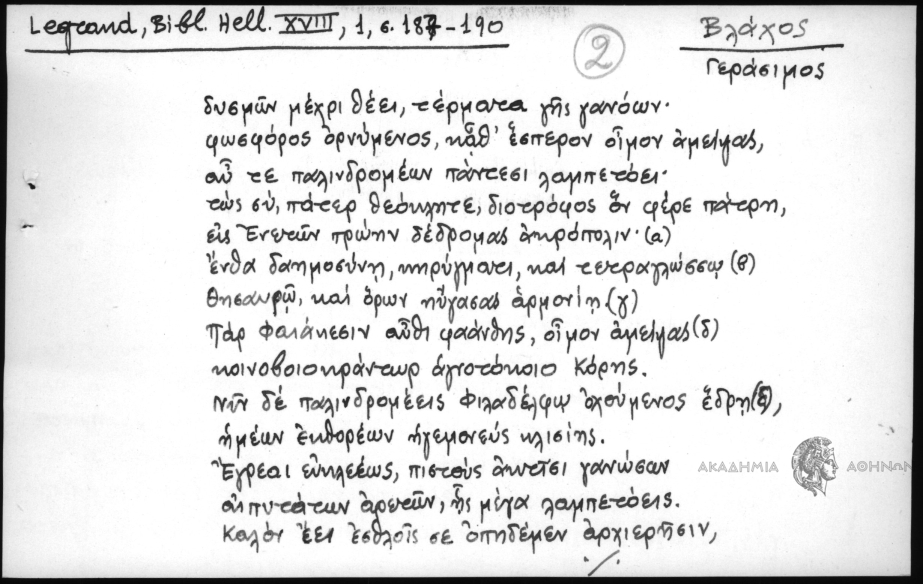 Legrand, Bibl. Hell. XVIII, 1, σ. 187-190
2
Βλάχος
Γεράσιμος
δυσμῶν μέχρι θέει, τέρματα γῆς γανόων·
φωσφόρος ὀρνύμενος, κᾆθ' ἕσπερον οἶμον ἀμείψας,
αὖ τε παλινδρομέων πάντεσι λαμπετόει·
τὼς σύ, πάτερ θεόκλητε, διοτρόφος ὃν φέρε πάτρη,
εἰς Ἐνετῶν πρώην δέδρομας ἀκρόπολιν· (α)
ἔνθα δαημοσύνῃ, κηρύγματι, καὶ τετραγλώσσῳ (β)
θησαυρῷ, καὶ ὅρων ηὔγασας ἁρμονίῃ. (γ)
Πὰρ Φαιάκεσιν αὖθι φαάνθης, οἶμον ἀμείψας (δ)
κοινοβιοκράντωρ ἁγνοτόκοιο Κόρης.
Νῦν δὲ παλινδρομέεις Φιλαδέλφῳ ὀχούμενος ἕδρῃ (ε),
ἡμέων ἐκθορέων ἡγεμονεὺς κλισίης.
Ἔγρεαι εὐκλεέως, πιστοὺς ἀκτῖσι γανώσαν
αἰπυτάτων ἀρετῶν, ᾗς μέγα λαμπετόεις.
Καλὸν ἔει ἐσθλοῖς σε ὀπηδέμεν ἀρχιερῆσιν,
./.
ΑΚΑΔΗΜΙΑ ΑΘΗΝΩΝ